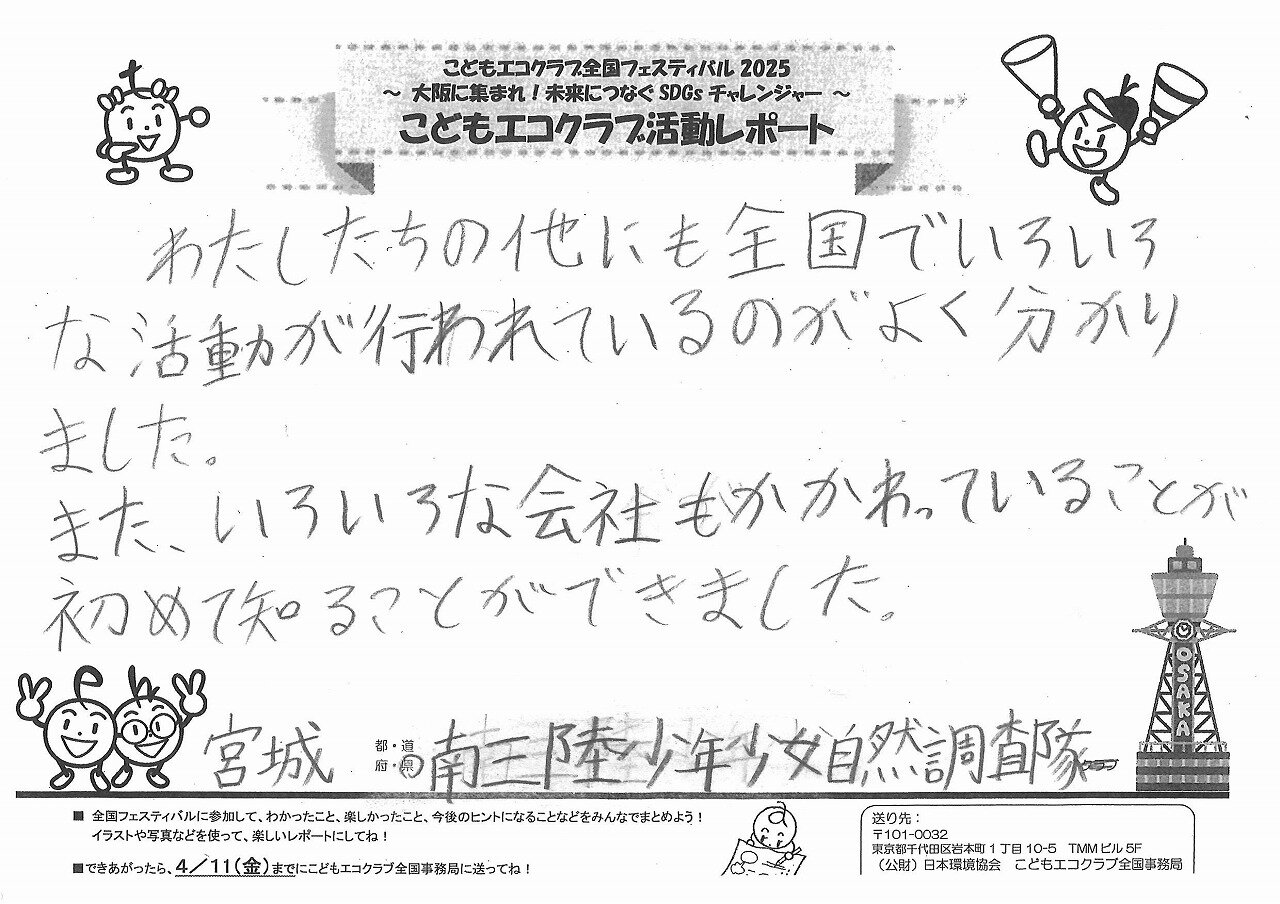 こどもエコクラブ全国フェスティバル 2025
～ 大阪に集まれ！未来につなぐ SDGs チャレンジャー ～
こどもエコクラブ活動レポート
わたしたちの他にも全国でいろいろ
な活動が行われているのがよく分かり
ました。
また、いろいろな会社もかかわっていることが
初めて知ることができました。
OSAKA
宮城 都・道 府・県 南三陸少年少女自然調査隊 クラブ
■ 全国フェスティバルに参加して、わかったこと、楽しかったこと、今後のヒントになることなどをみんなでまとめよう！
イラストや写真などを使って、楽しいレポートにしてね！
■できあがったら、4／11(金)までにこどもエコクラブ全国事務局に送ってね！
送り先：
〒101-0032
東京都千代田区岩本町 1 丁目 10-5 TMM ビル 5F
（公財）日本環境協会 こどもエコクラブ全国事務局